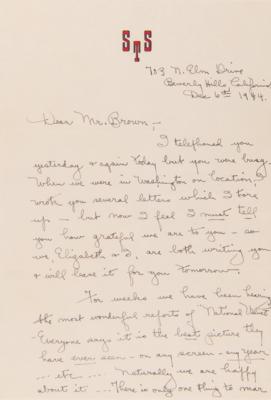 STS
703 N. Elm Drive
Beverly Hills California
Dec 6th 1944.
Dear Mr. Brown,-
I telephoned you
yesterday & again today but you were busy.
When we were in Washington on location, I
wrote you several letters which I tore
up — but now I feel I must tell
you how grateful we are to you - so
we, Elizabeth & I, are both writing you
& will leave it for you tomorrow.
For weeks we have been having
the most wonderful reports of National Velvet
- Everyone says it is the best picture they
have ever seen - on any screen - any year
.... etc .... Naturally we are happy
about it .... There is only one thing to mar